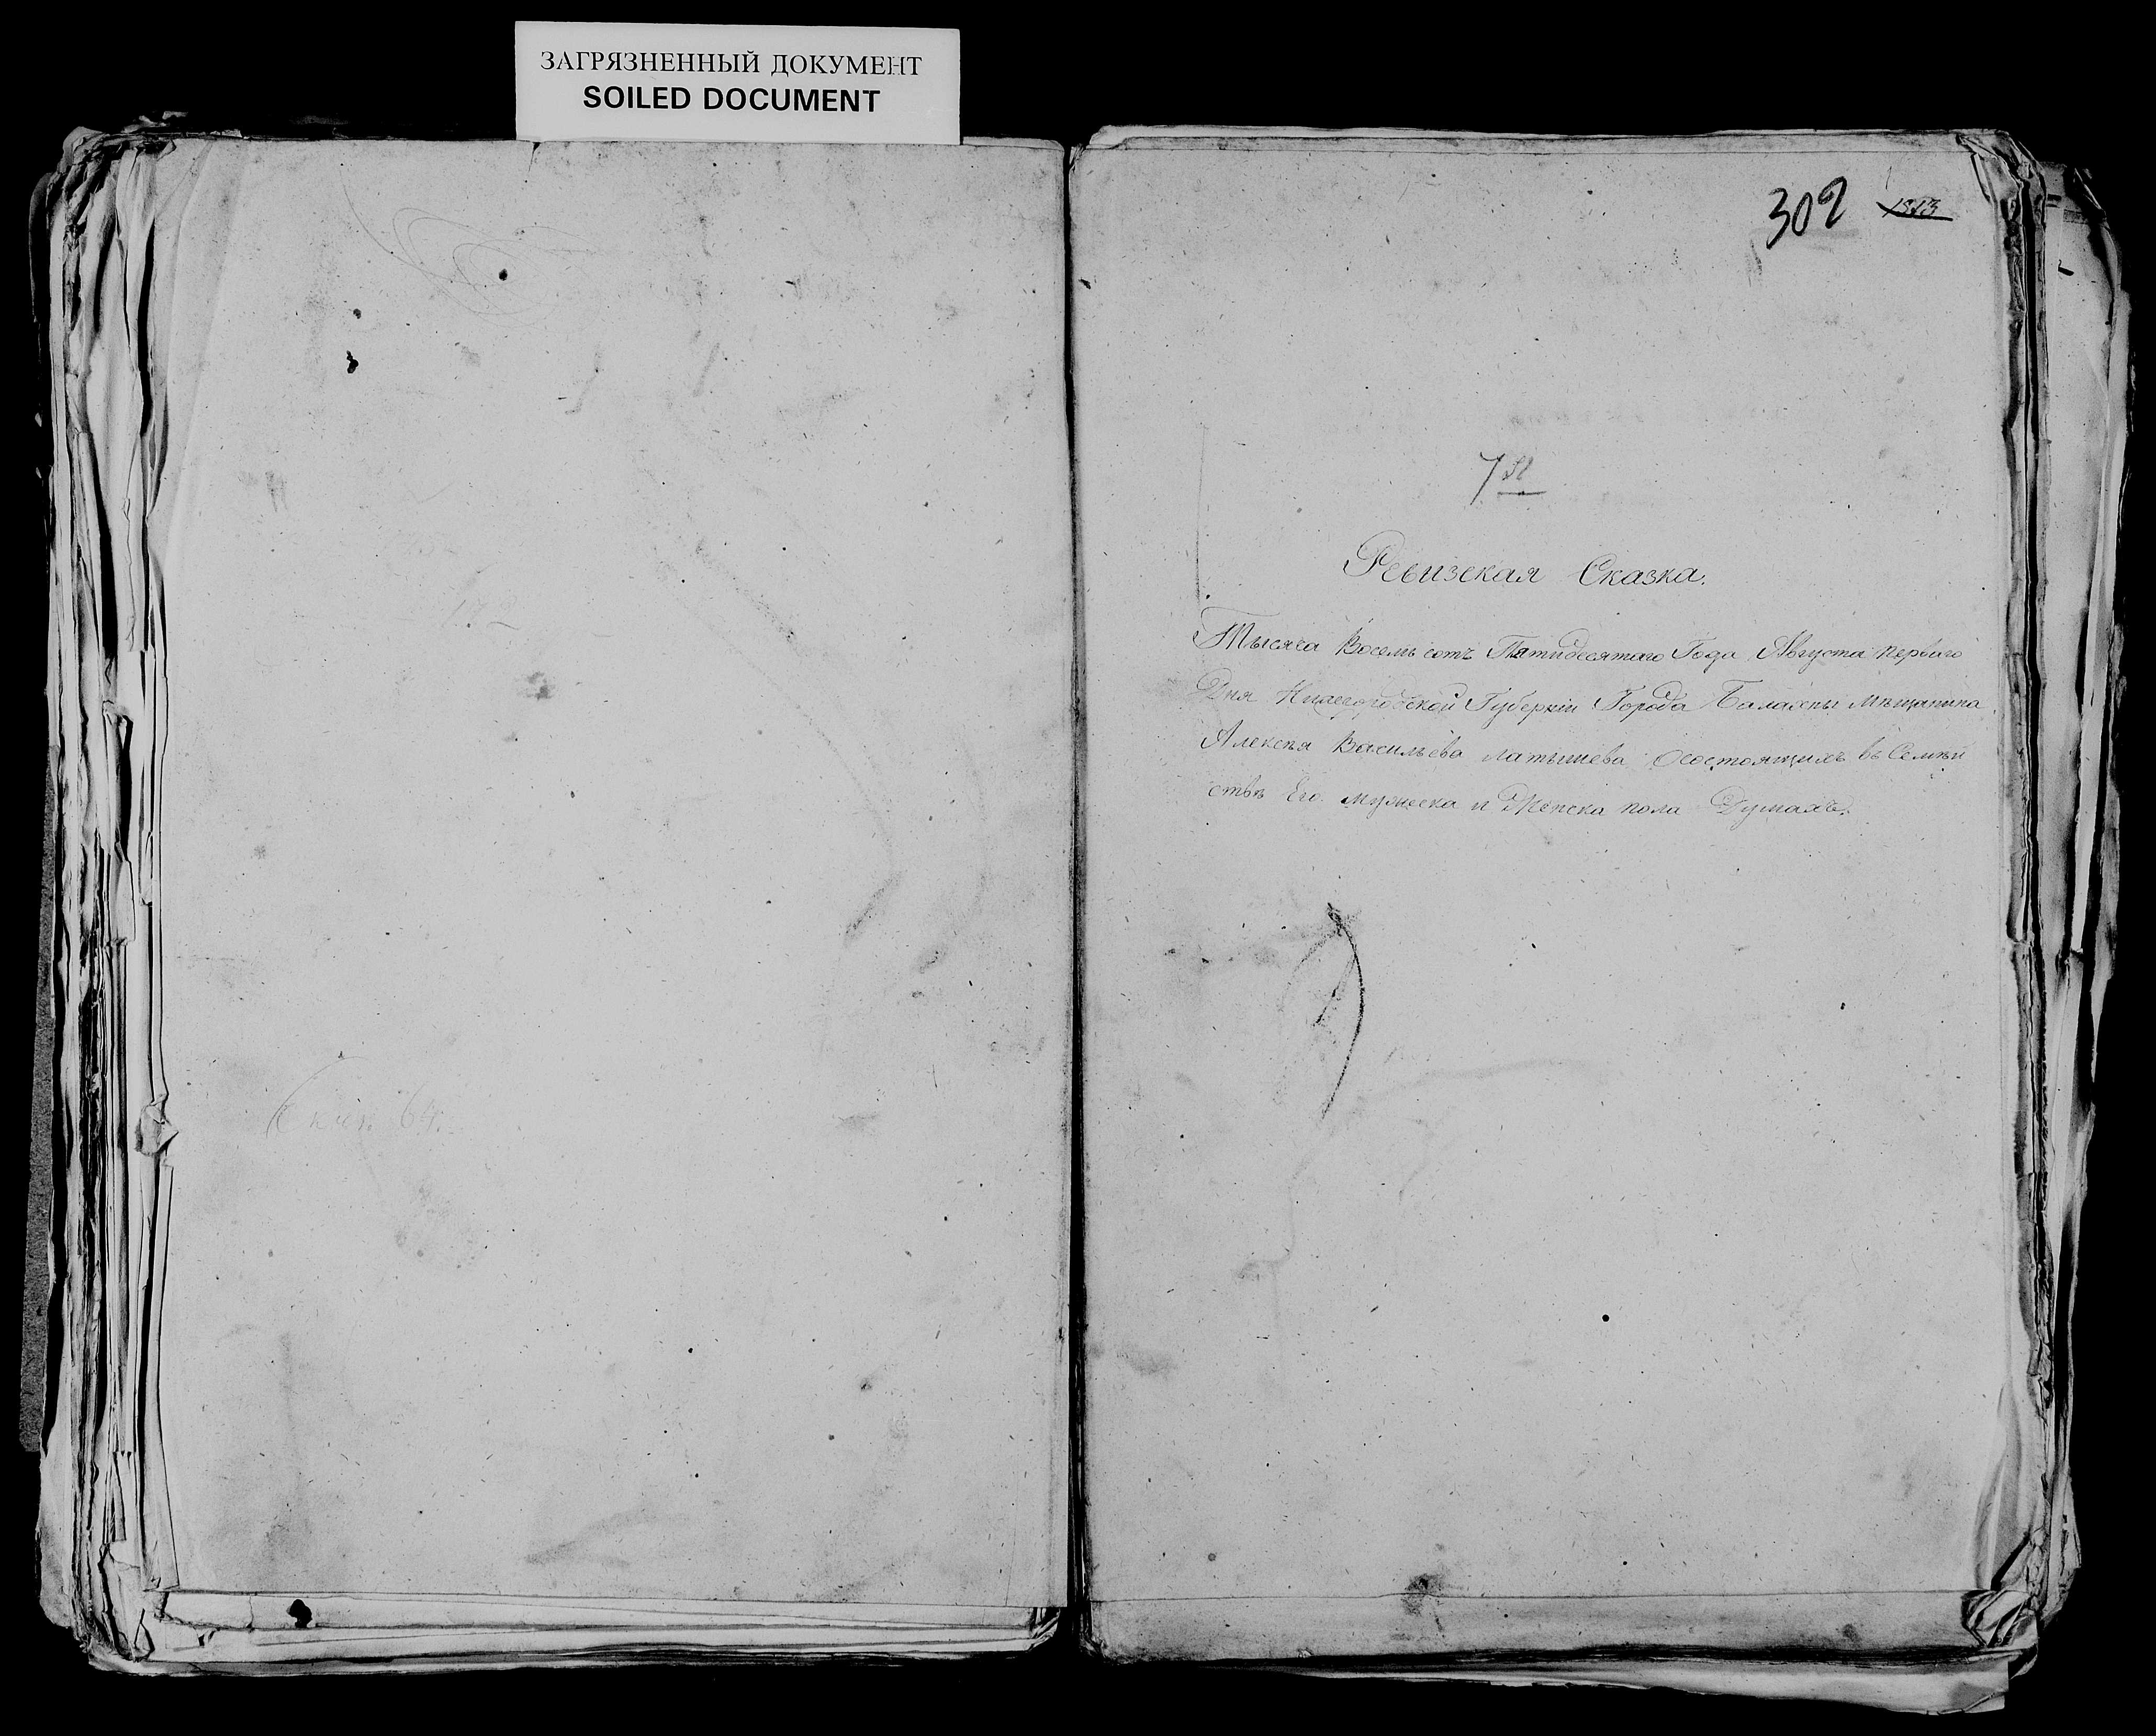 ЗАГРЯЗНЕННЫЙ ДОКУМЕНТ
SOILED DOCUMENT
302
Ревизская Сказка.
Тысяча Восемь сотъ Пятидесятаго Года Августа перваго
Дня Нижегородской Губернiи Города Балахны Мѣщанина
Алексѣя Васильева Латышева Осостоящихъ въ Семѣй
ствѣ Его мужеска и Женска пола Душахъ.